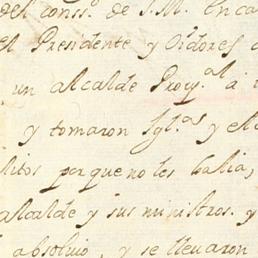 del cons.º de S.M. en ca
el Presidente y Oidores
un alcalde Prov.al a
y tomaron Igl.as y el
litos porque no les havia,
alcalde y sus ministros. y
absolvio, y se llevaron